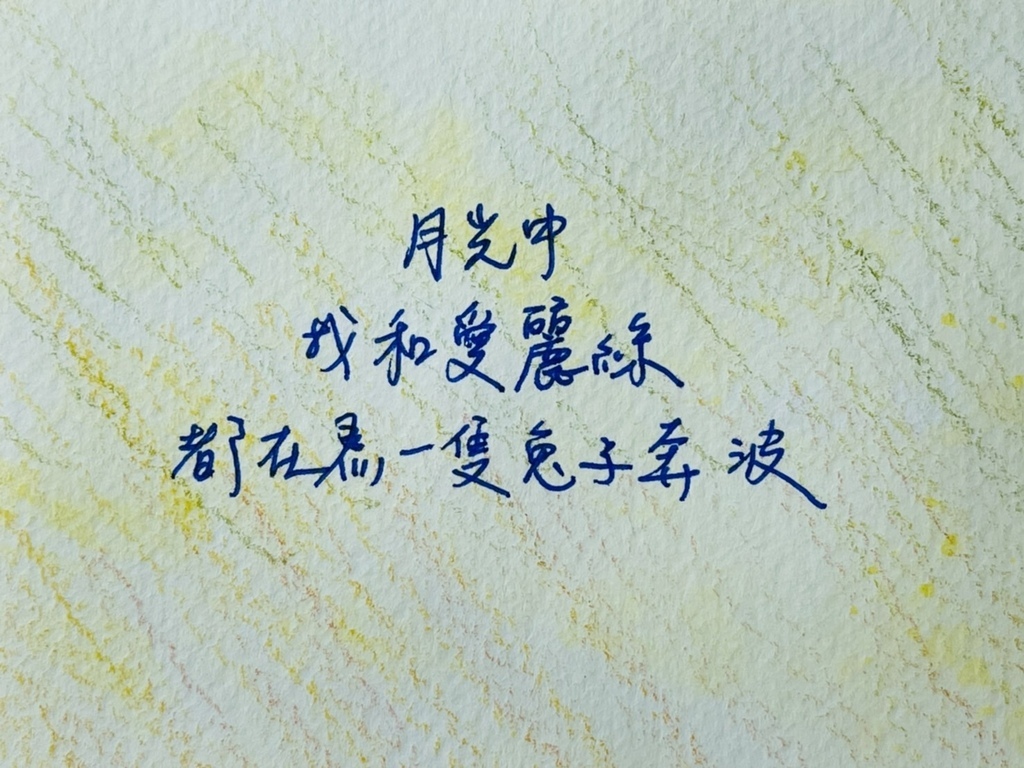 月光中
我和愛麗絲
都在為一隻兔子奔波